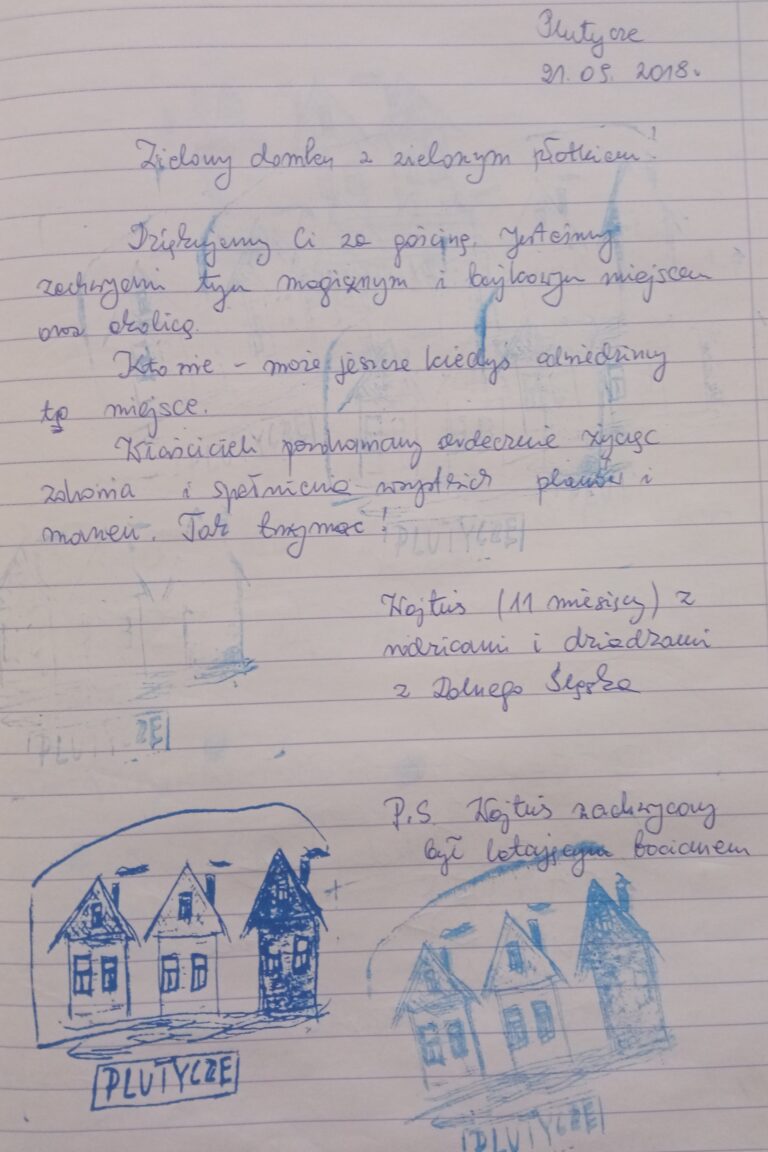 Plutycze
21.05. 2018.
Zielony domku z zielonym płotkiem!
Dziękujemy Ci za gościnę. Jesteśmy
zachwyceni tym magicznym i bajkowym miejscem
oraz okolicą.
Kto wie - może jeszcze kiedyś odwiedzimy
to miejsce.
Właścicieli pozdrawiamy serdecznie życząc
zdrowia i spełnienia wszystkich planów i
marzeń. Tak trzymać!
Wojtuś (11 miesięcy) z
rodzicami i dziadkami
z Dolnego Śląska
P.S. Wojtuś zachwycony
był latającym bocianem
PLUTYCZE
PLUTYCZE
PLUTYCZE
PLUTYCZE